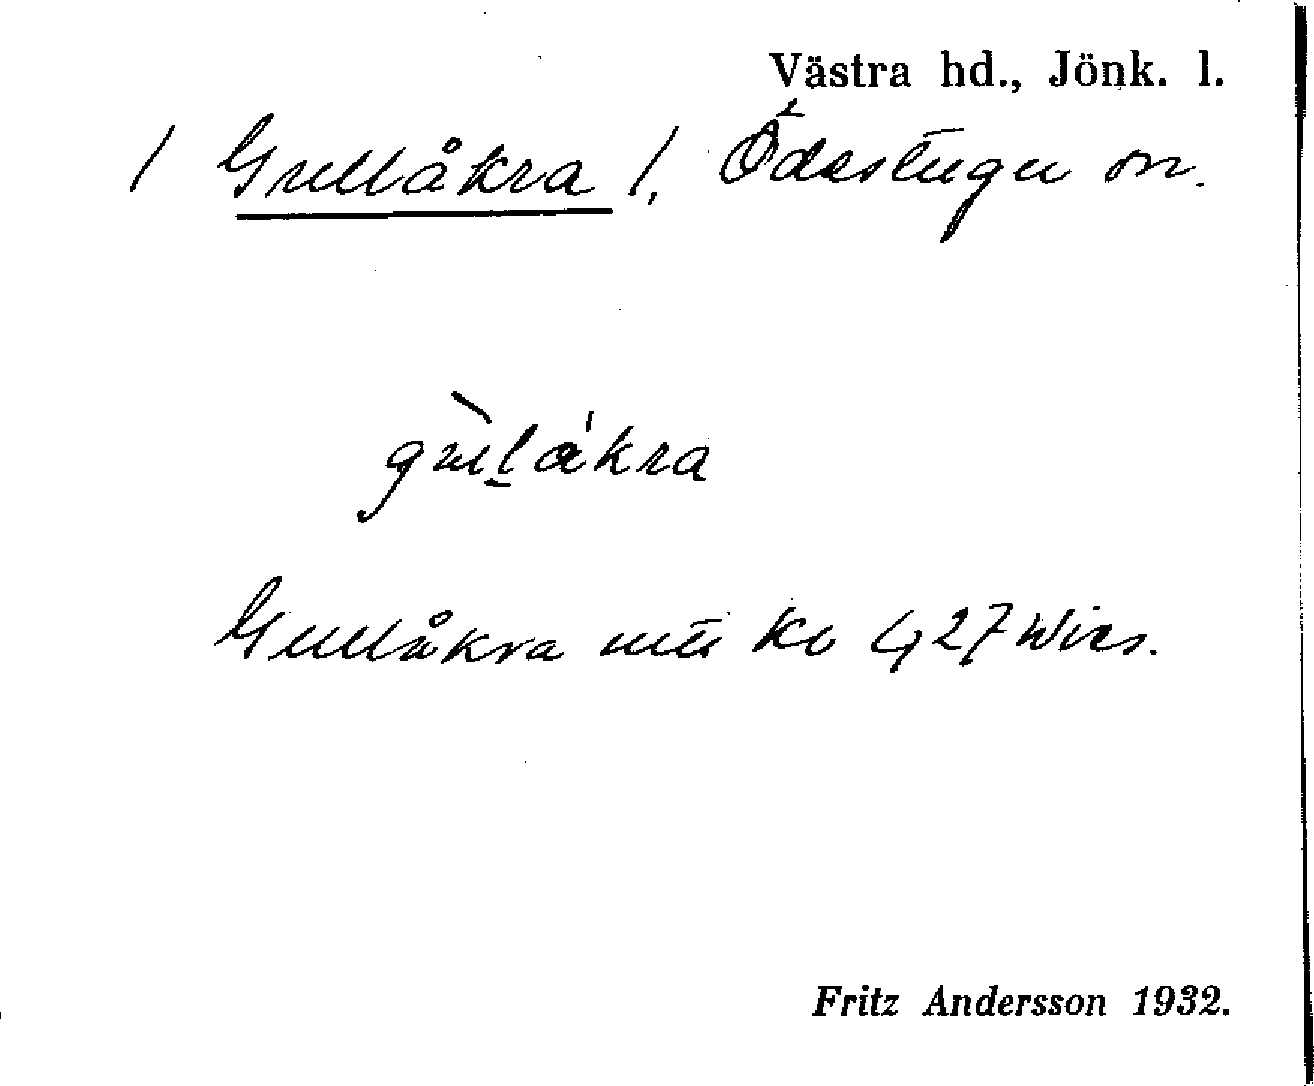 Västra hd., Jönk. l.
/ Gullåkra /, Ödestugu sn.
gul̲åkra
Gullåkra Ko 4,27 Wies.
Fritz Andersson 1932.